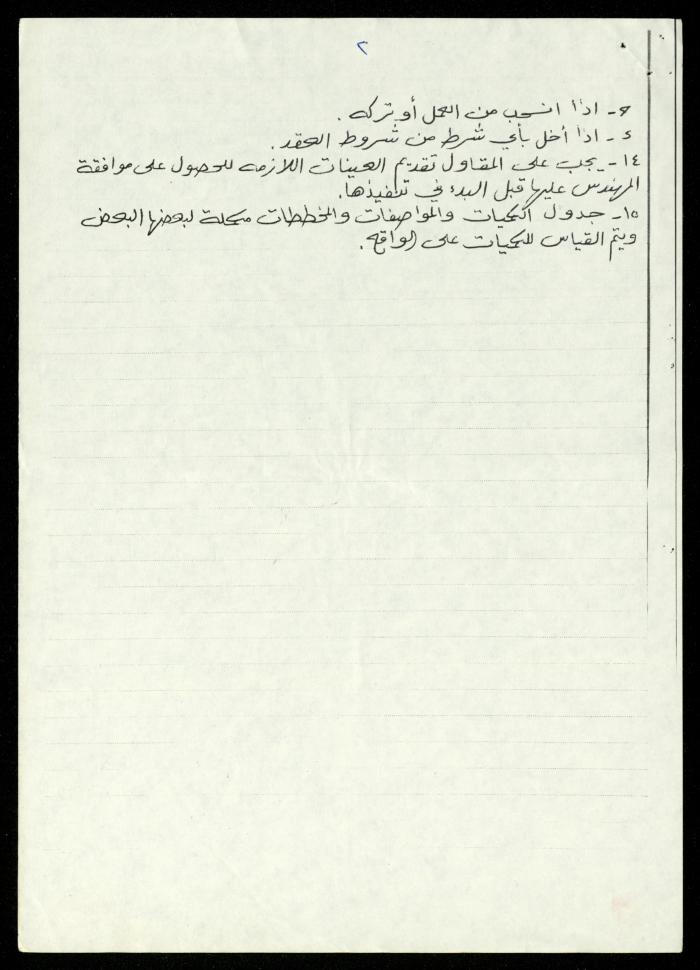 ٢
جـ - اذا انسحب من العمل أو تركه .
د - اذا أخل بأي شرط من شروط العقد .
١٤ - يجب على المقاول تقديم العينات اللازمه للحصول على موافقة
المهندس عليها قبل البدء في تنفيذها .
١٥ - جدول الكميات والمواصفات والمخططات مكملة لبعضها البعض
ويتم القياس للكميات على الواقع .